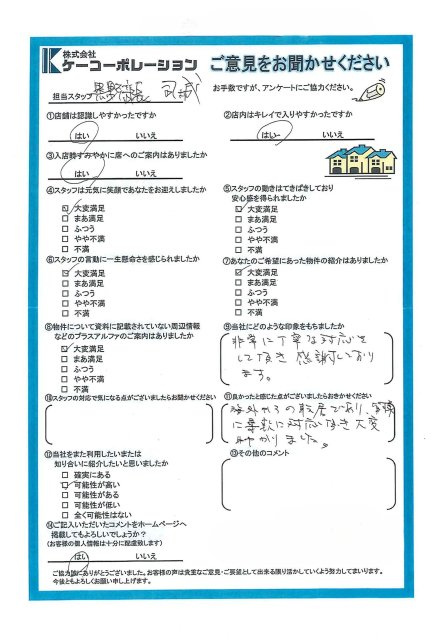 株式会社
ケーコーポレーション ご意見をお聞かせください
担当スタッフ
お手数ですが、アンケートにご協力ください。
①店舗は認識しやすかったですか
はい いいえ
②店内はキレイで入りやすかったですか
はい いいえ
③入店時すみやかに席へのご案内はありましたか
はい いいえ
④スタッフは元気に笑顔であなたをお迎えしましたか
大変満足
まあ満足
ふつう
やや不満
不満
⑤スタッフの動きはてきぱきしており
安心感を得られましたか
大変満足
まあ満足
ふつう
やや不満
不満
⑥スタッフの言動に一生懸命さを感じられましたか
大変満足
まあ満足
ふつう
やや不満
不満
⑦あなたのご希望にあった物件の紹介はありましたか
大変満足
まあ満足
ふつう
やや不満
不満
⑧物件について資料に記載されていない周辺情報
などのプラスアルファのご案内はありましたか
大変満足
まあ満足
ふつう
やや不満
不満
⑨当社にどのような印象をもちましたか
非常に丁寧な対応を
して頂き 感謝しており
ます。
⑩スタッフの対応で気になる点がございましたらお聞かせください
⑪良かったと感じた点がございましたらお聞きせください
海外からの転居であり、
に柔軟に対応頂き大変
助かりました。
⑫当社をまた利用したいまたは
知り合いに紹介したいと思いましたか
確実にある
可能性が高い
可能性がある
可能性が低い
全く可能性はない
⑬その他のコメント
⑭ご記入いただいたコメントをホームページへ
掲載してもよろしいでしょうか?
(お客様の個人情報は十分に配慮致します)
はい いいえ
ご協力誠にありがとうございました。お客様の声は貴重なご意見・ご要望として出来る限り活かしていくよう努力してまいります。
今後ともよろしくお願い申し上げます。